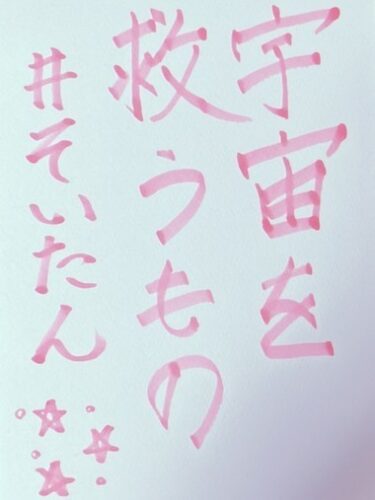 宇宙を
救うもの
#そいたん